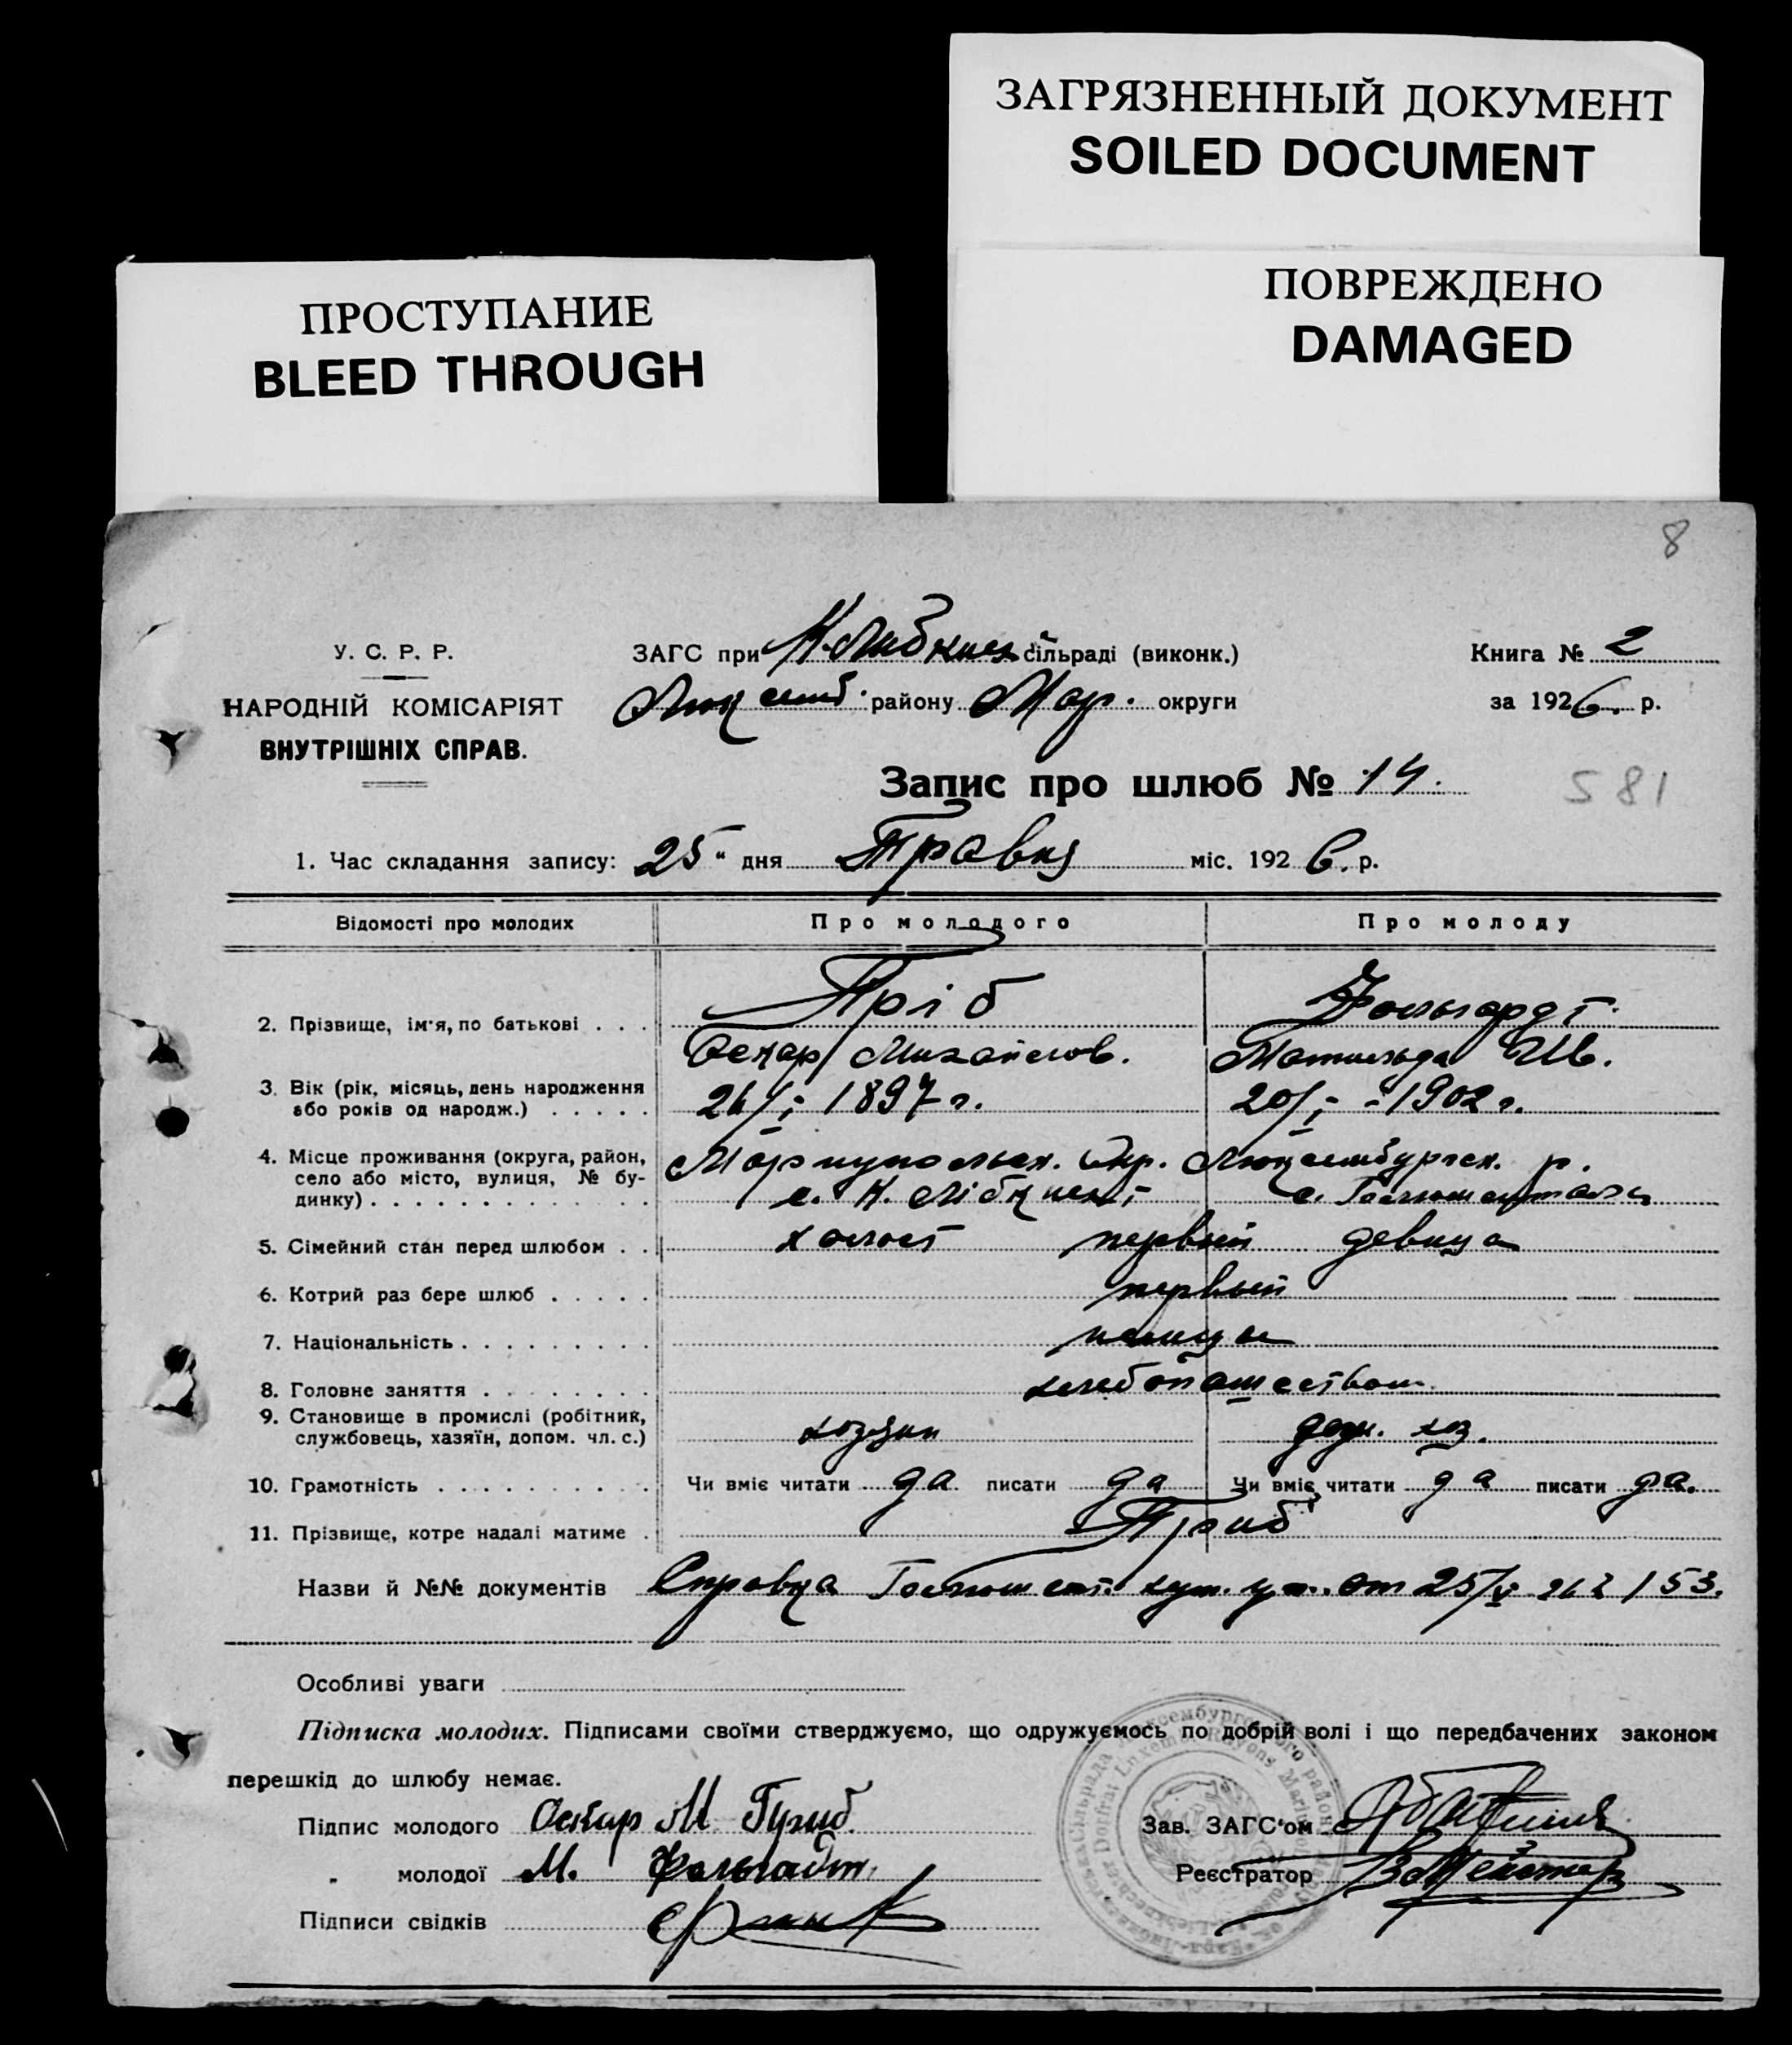 ЗАГРЯЗНЕННЫЙ ДОКУМЕНТ
SOILED DOCUMENT
ПРОСТУПАНИЕ
BLEED THROUGH
ПОВРЕЖДЕНО
DAMAGED
8
У. С. Р. Р.
НАРОДНІЙ КОМІСАРІЯТ
ВНУТРІШНІХ СПРАВ.
ЗАГС при К. Либкнех. сільраді (виконк.)
Люксемб. району Мар. округи
Книга № 2
за 1926. р.
Запис про шлюб № 14.
581
1. Час складання запису: 25 " дня Травня міс. 1926. р.
Відомості про молодих Про молодого Про молоду
2. Прізвище, ім'я, по батькові . . . Пріб Фольгардт.
Оскар Михайлов. Матильда Ив.
3. Вік (рік, місяць, день народження 26/I - 1897 г. 20/I - 1902 г.
або років од народж.) . . . . .
4. Місце проживання (округа, район, Мариупольск. Окр. Люксембургск. р.
село або місто, вулиця, № бу- с. К. Лібкнехт
динку) . . . . . . . . . . . . .
5. Сімейний стан перед шлюбом . . холост первый девица
6. Котрий раз бере шлюб . . . . . первый
7. Національність . . . . . . . . . немцы
8. Головне заняття . . . . . . . . хлебопашеством
9. Становище в промислі (робітник, хозяин дом. хоз.
службовець, хазяїн, допом. чл. с.)
10. Грамотність . . . . . . . . . . Чи вміє читати да писати да Чи вміє читати да писати да.
11. Прізвище, котре надалі матиме . Приб
Назви й №№ документів Справка от 25/V 26 153.
Особливі уваги
Підписка молодих. Підписами своїми стверджуємо, що одружуємось по добрій волі і що передбачених законом
перешкід до шлюбу немає.
Підпис молодого Оскар М Приб.
" молодої М. Фольгадт.
Підписи свідків
Зав. ЗАГС'ом
Реєстратор